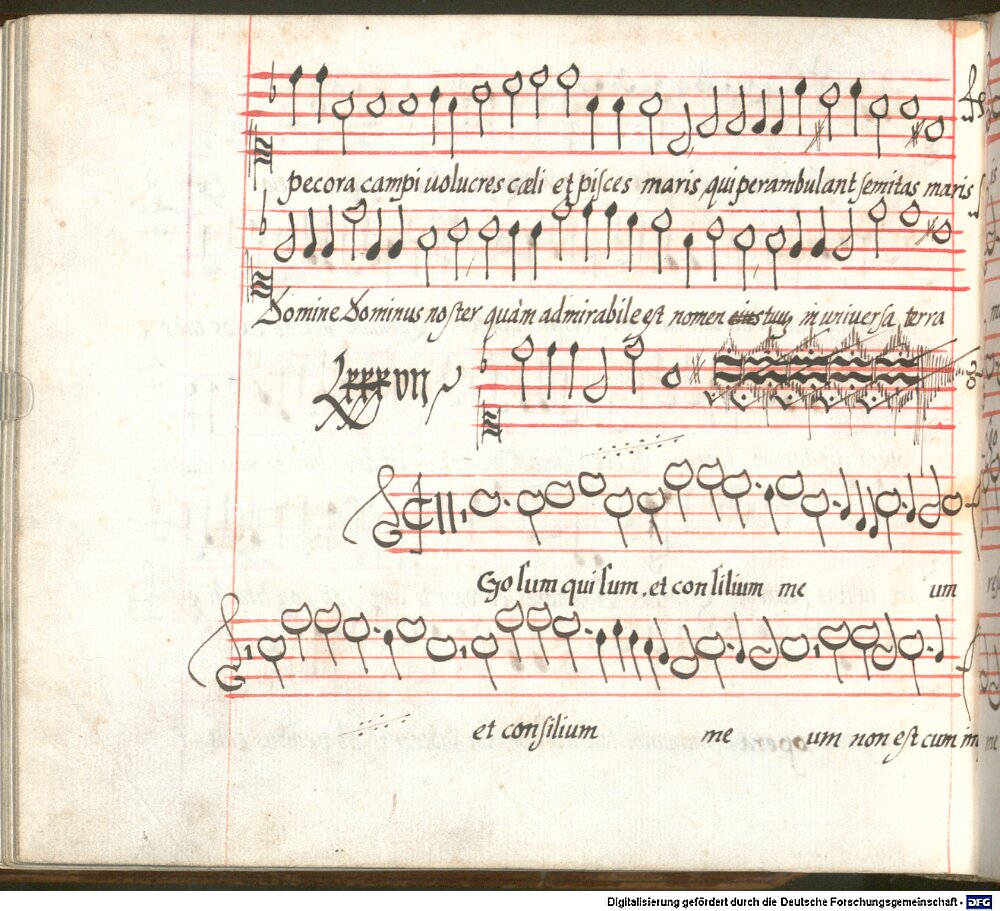 pecora campi uolucres cæli et pisces maris, qui perambulant semitas maris
Domine Dominus noster quàm admirabile est nomen tuuȝ in universa terra
Lxxxvii
Ego sum qui sum, et consilium me um
et consilium me um non est cum im
Digitalisierung gefördert durch die Deutsche Forschungsgemeinschaft - DFG